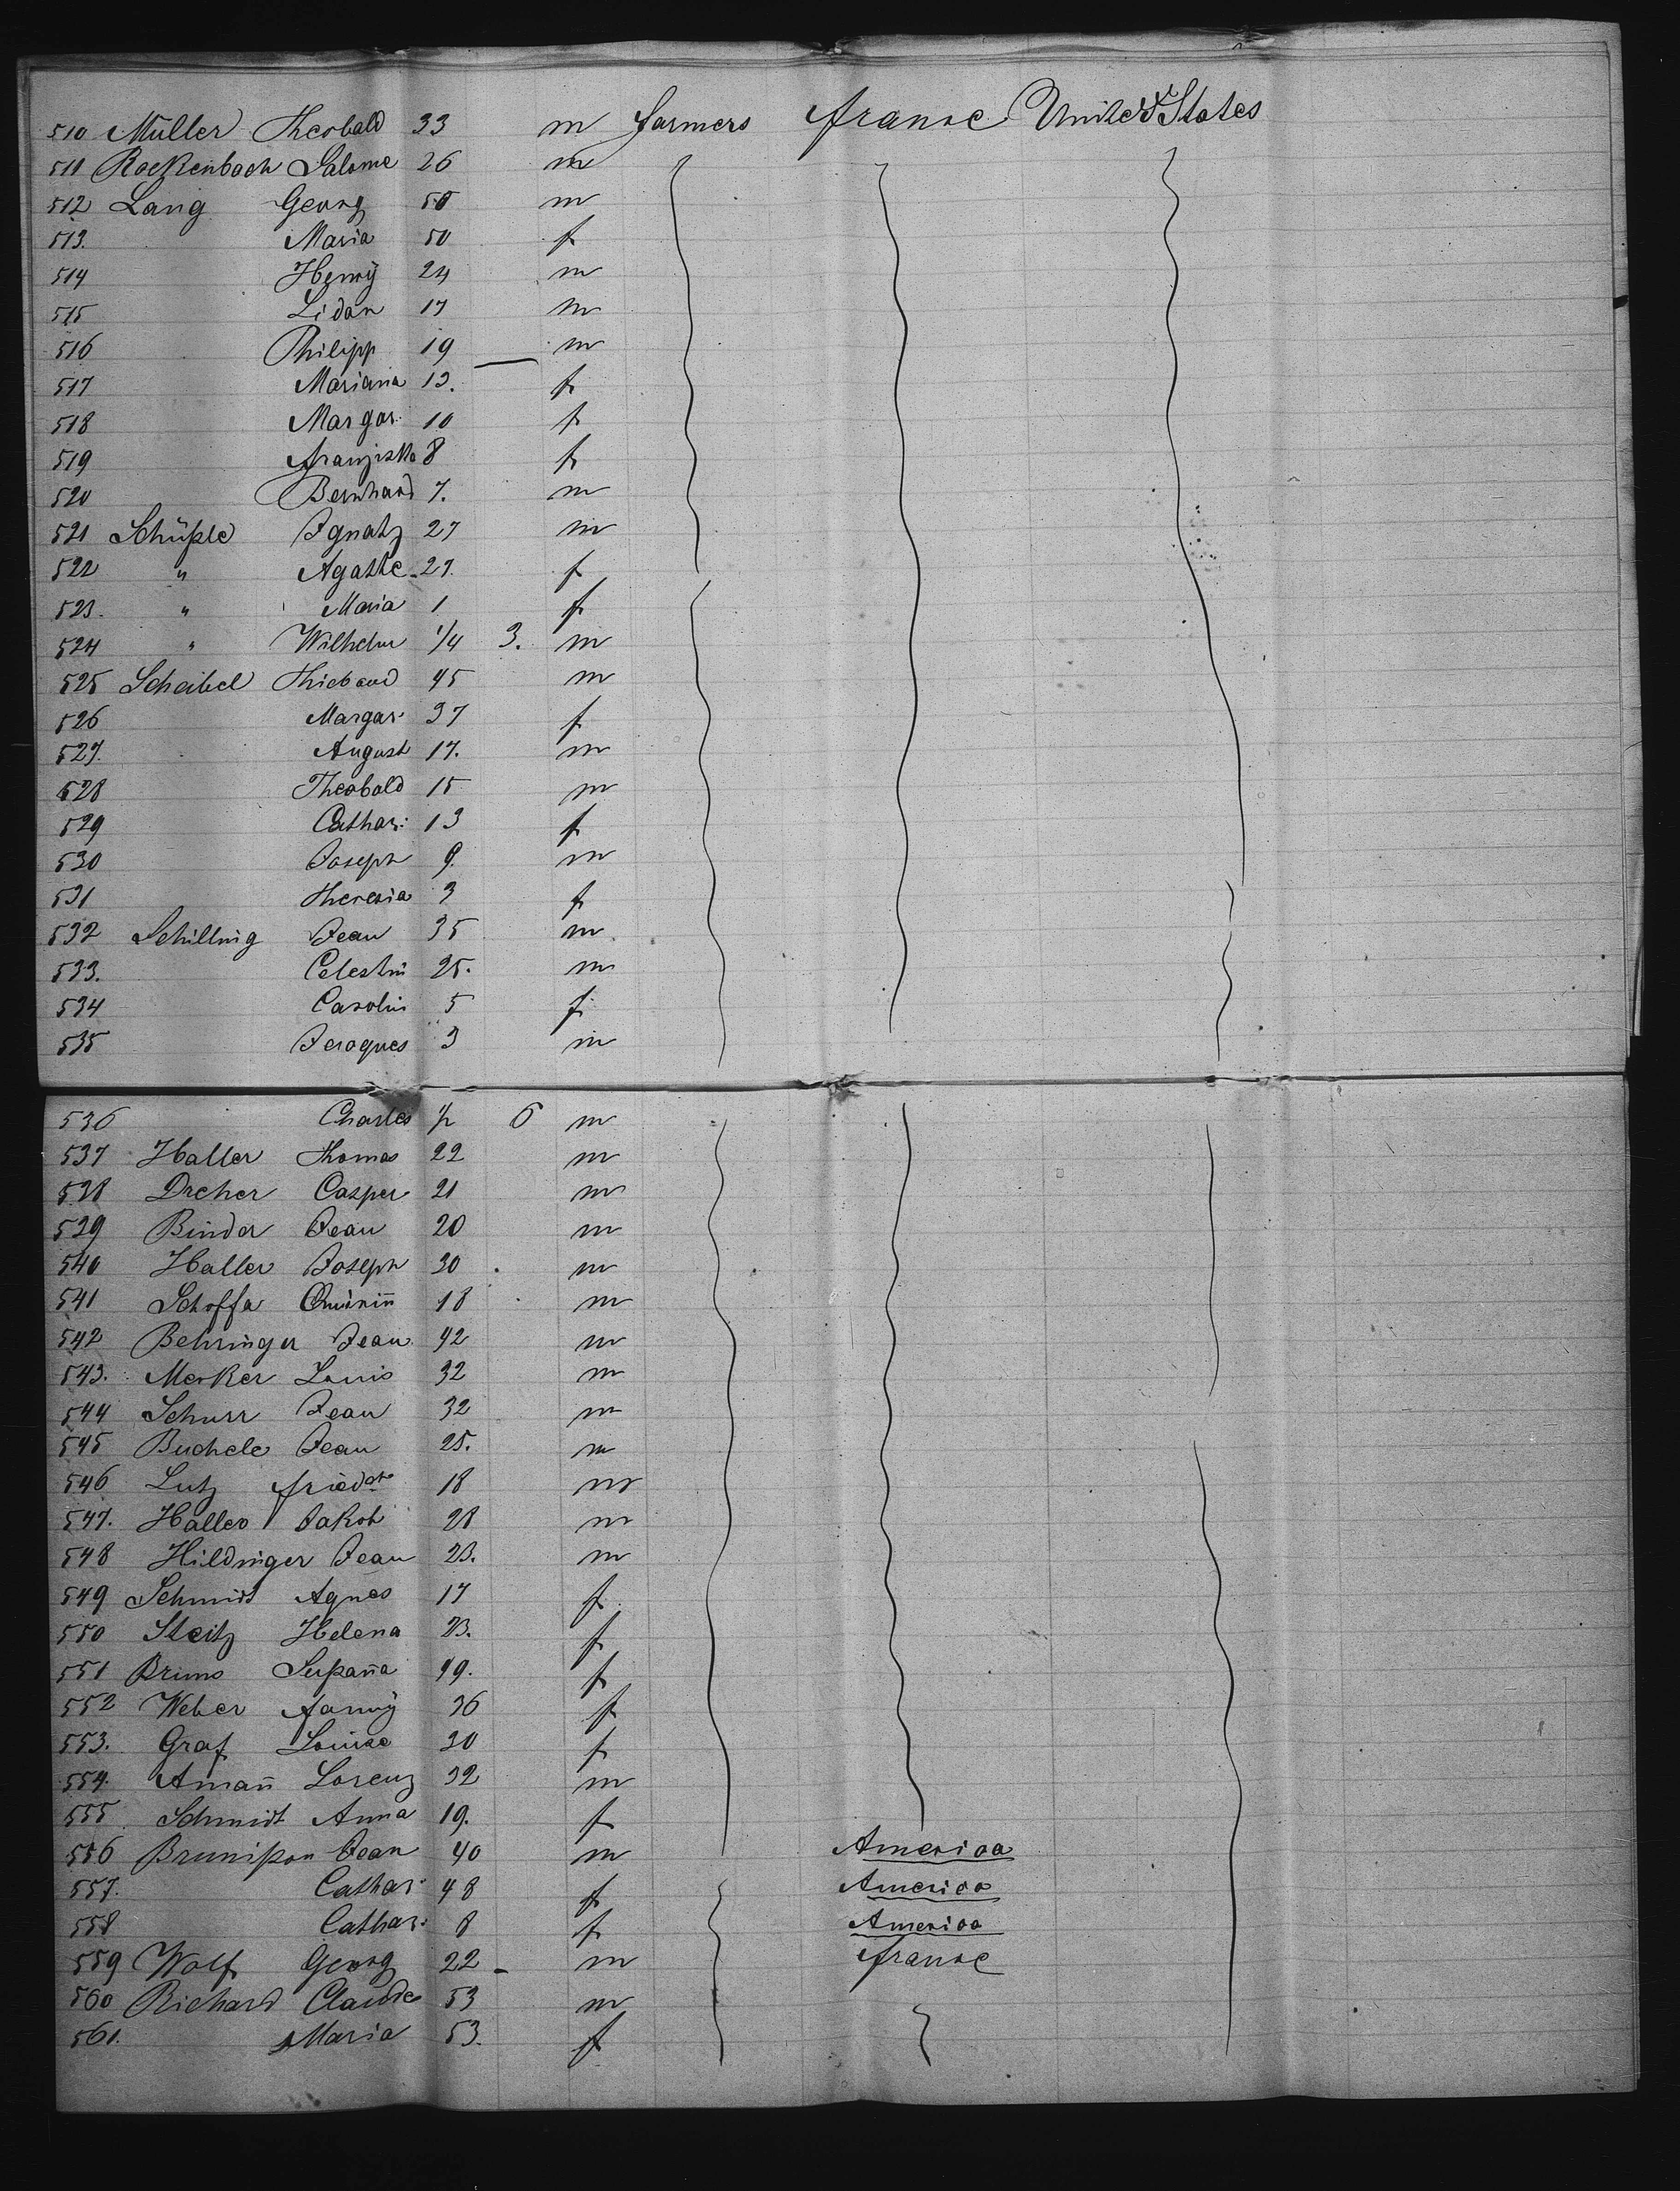 510 Müller Theobald 33 m farmers franse United States
511 Rockenbach Salome 26 m
512 Lang Georg 50 m
513. Maria 50 f
514 Henry 24 m
515 Lidan 17 m
516 Philipp 19 m
517 Mariana 13. f
518 Margar: 10 f
519 franziska 8 f
520 Bernhard 7. m
521 Schüßle Ignatz 27 m
522 " Agathe 27. f
523. " Maria 1 f
524 " Wilhelm 1/4 3. m
525 Scheibel Thiebaud 45 m
526 Margar: 37 f
527. August 17. m
528 Theobald 15 m
529 Cathar: 13 f
530 Joseph 9. m
531 Theresia 3 f
532 Schilling Jean 35 m
533. Celestin 25. m
534 Carolin 5 f
535 Jeraques 3 m
536 Charles 1/2 6 m
537 Haller Thomas 22 m
538 Dreher Casper 21 m
539 Binder Jean 20 m
540 Haller Joseph 30 m
541 Schoffa 18 m
542 Behringer Jean 42 m
543. Merker Louis 32 m
544 Schurr Jean 32 m
545 Buchele Jean 25. m
546 Lutz friedch 18 m
547. Haller Jakob 28 m
548 Hildinger Jean 23. m
549 Schmidt Agnes 17 f
550 Steitz Helena 23. f
551 Bruno Sußana 49. f
552 Weber fanny 36 f
553. Graf Louise 30 f
554. Aman̄ Lorenz 32 m
555 Schmidt Anna 19. f
556 Brunißon Jean 40 m America
557. Cathar: 48 f America
558 Cathar: 8 f America
559 Wolf Georg 22 m franse
560 Richard Claude 53 m
561. Maria 53. f